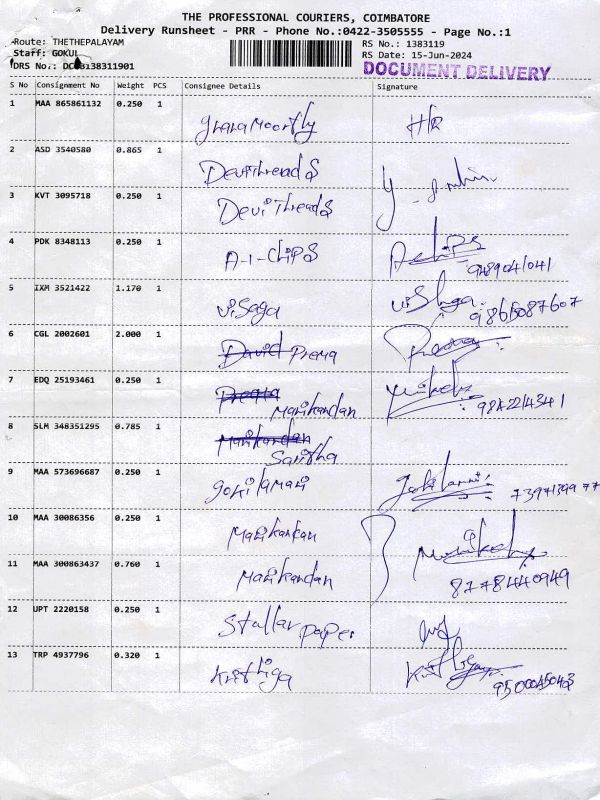 THE PROFESSIONAL COURIERS, COIMBATORE
Delivery Runsheet - PRR - Phone No.:0422-3505555 - Page No.:1
Route: THETHEPALAYAM
RS No.: 1383119
Staff: GOKUL
RS Date: 15-Jun-2024
DRS No.: 38131901
DOCUMENT DELIVERY
S No Consignment No Weight PCS Consignee Details Signature
1 MAA 865861132 0.250 1
2 ASD 3540580 0.865 1 Devithreads
3 KVT 3095718 0.250 1 Devithreads
4 PDK 8348113 0.250 1 A-1-Chips
989041041
5 IXM 3521422 1.170 1 visaga
9865087607
6 CGL 2002601 2.000 1 David Prema
7 EDQ 25193461 0.250 1 Prema Manikandan
9842214341
8 SLM 348351295 0.785 1 Manikandan
Saritha
9 MAA 573696687 0.250 1 gokilamani
7397139977
10 MAA 30086356 0.250 1 Manikandan
11 MAA 300863437 0.760 1 Manikandan
8778440949
12 UPT 2220158 0.250 1 Stallar paper
13 TRP 4937796 0.320 1 Krithiga